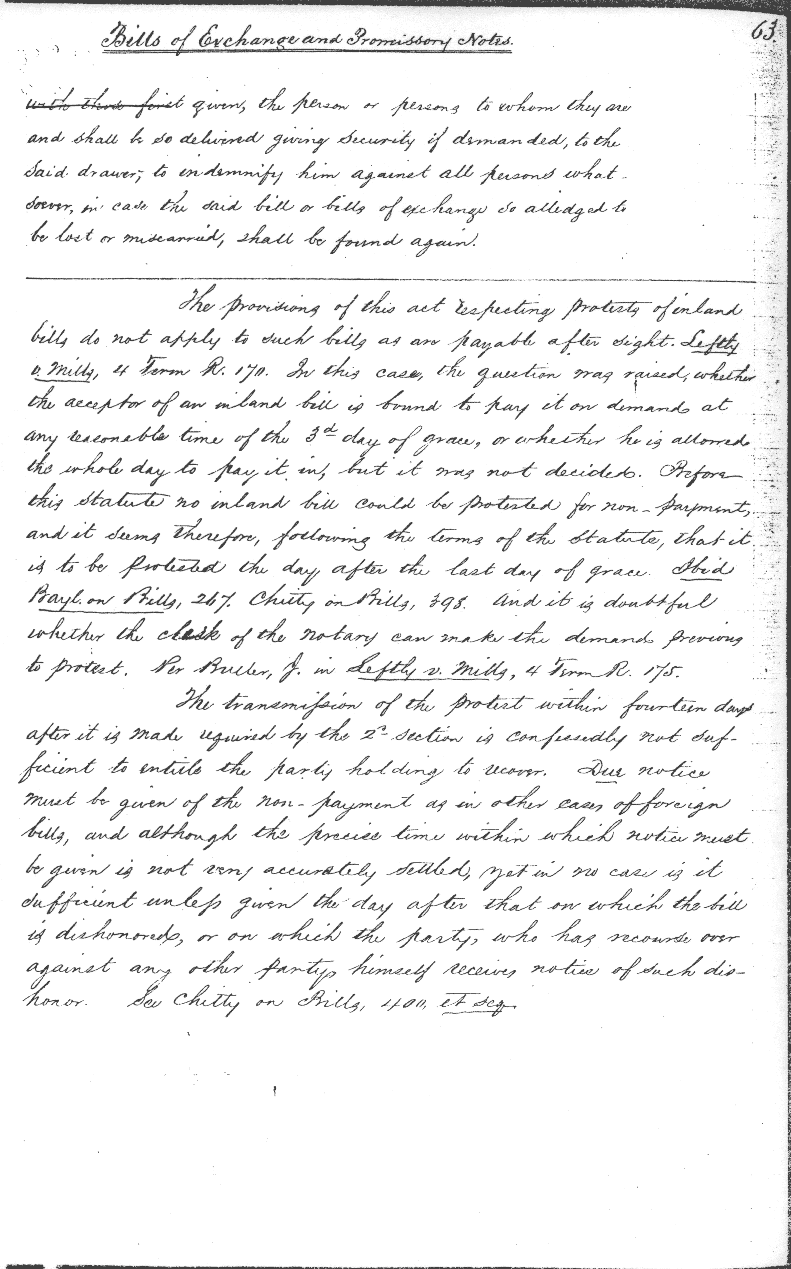 63.
Bills of Exchange and Promissory Notes.
with those first given, the person or persons to whom they are
and shall be so delivered giving security if demanded, to the
said drawer, to indemnify him against all persons what-
soever, in case the said bill or bills of exchange so alledged to
be lost or miscarried, shall be found again.
The provisions of this act respecting protests of inland
bills do not apply to such bills as are payable after sight. Leftly
v. Mills, 4 Term R. 170. In this case, the question was raised, whether
the acceptor of an inland bill is bound to pay it on demand at
any reasonable time of the 3d day of grace, or whether he is allowed
the whole day to pay it in, but it was not decided. Before
this statute no inland bill could be protested for non-payment,
and it seems therefore, following the terms of the statute, that it
is to be protested the day after the last day of grace. Ibid
Bayl. on Bills, 267. Chitty on Bills, 393. And it is doubtful
whether the clerk of the notary can make the demand previous
to protest. Per Buller, J. in Leftly v. Mills, 4 Term R. 175.
The transmission of the protest within fourteen days
after it is made required by the 2d section is confessedly not suf-
ficient to entitle the party holding to recover. Due notice
must be given of the non-payment as in other cases of foreign
bills, and although the precise time within which notice must
be given is not very accurately settled, yet in no case is it
sufficient unless given the day after that on which the bill
is dishonored, or on which the party, who has recourse over
against any other party, himself receives notice of such dis-
honor. See Chitty on Bills, 400, et seq.